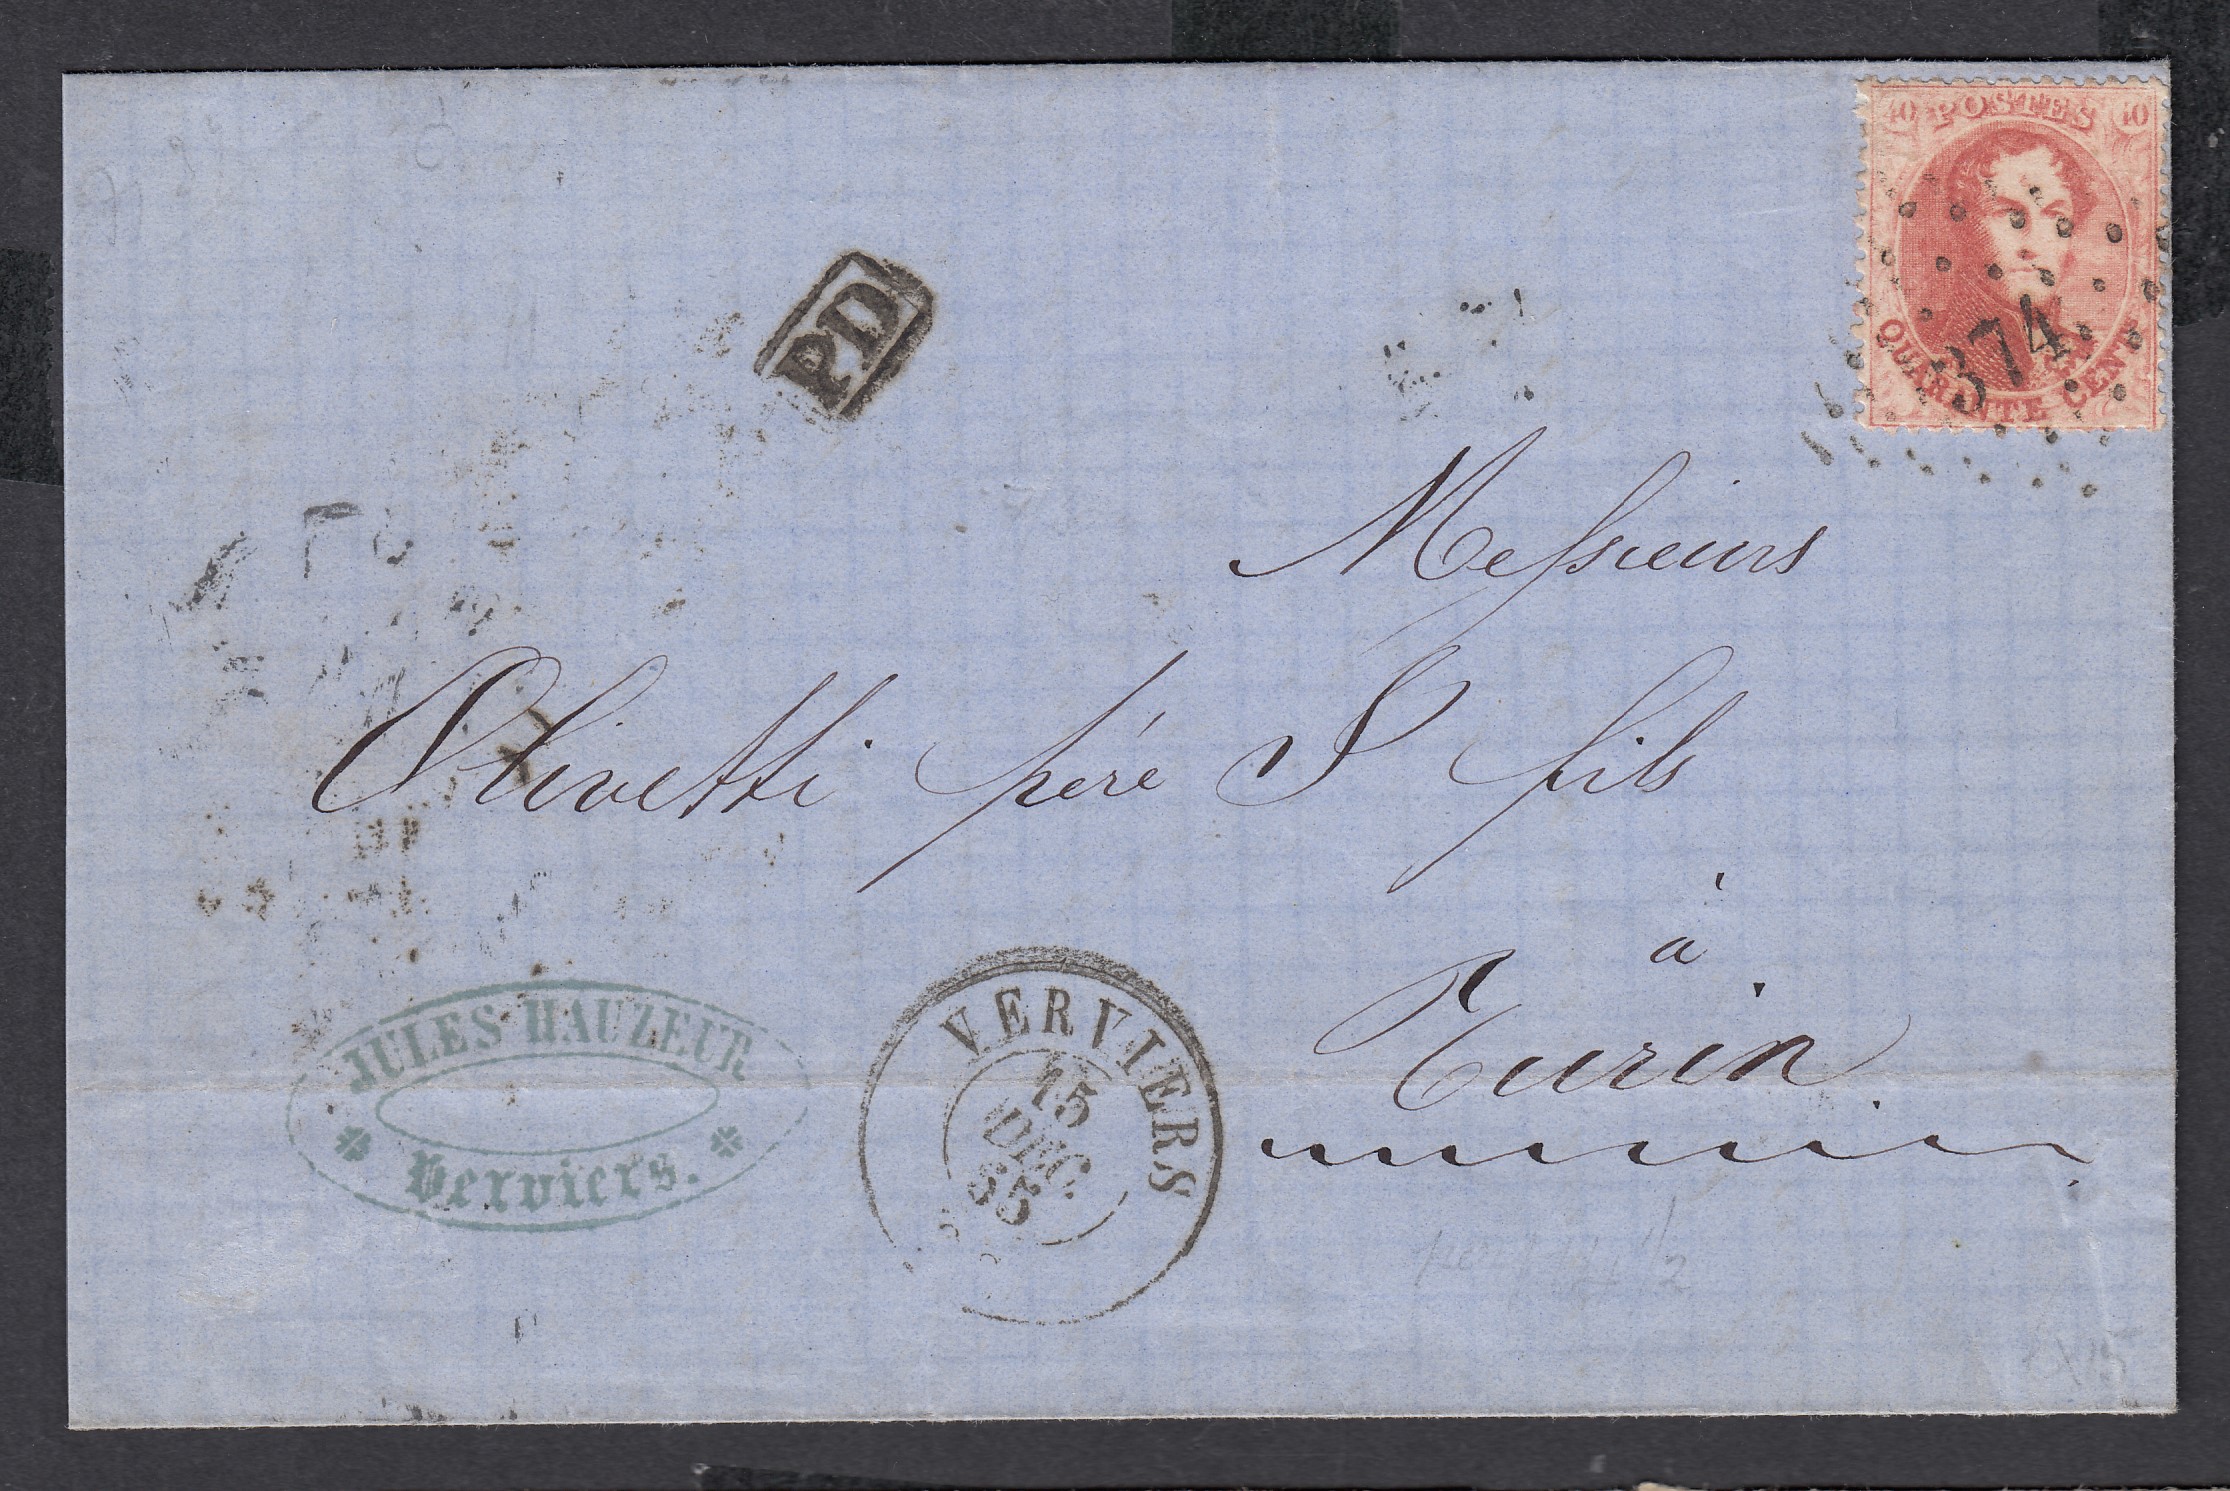 40 POSTES 40
QUARANTE CENT
374
PD
Messieurs
Olivetti père & fils
à
Turin
JULES HAUZEUR
Verviers.
VERVIERS
15
DEC.
65